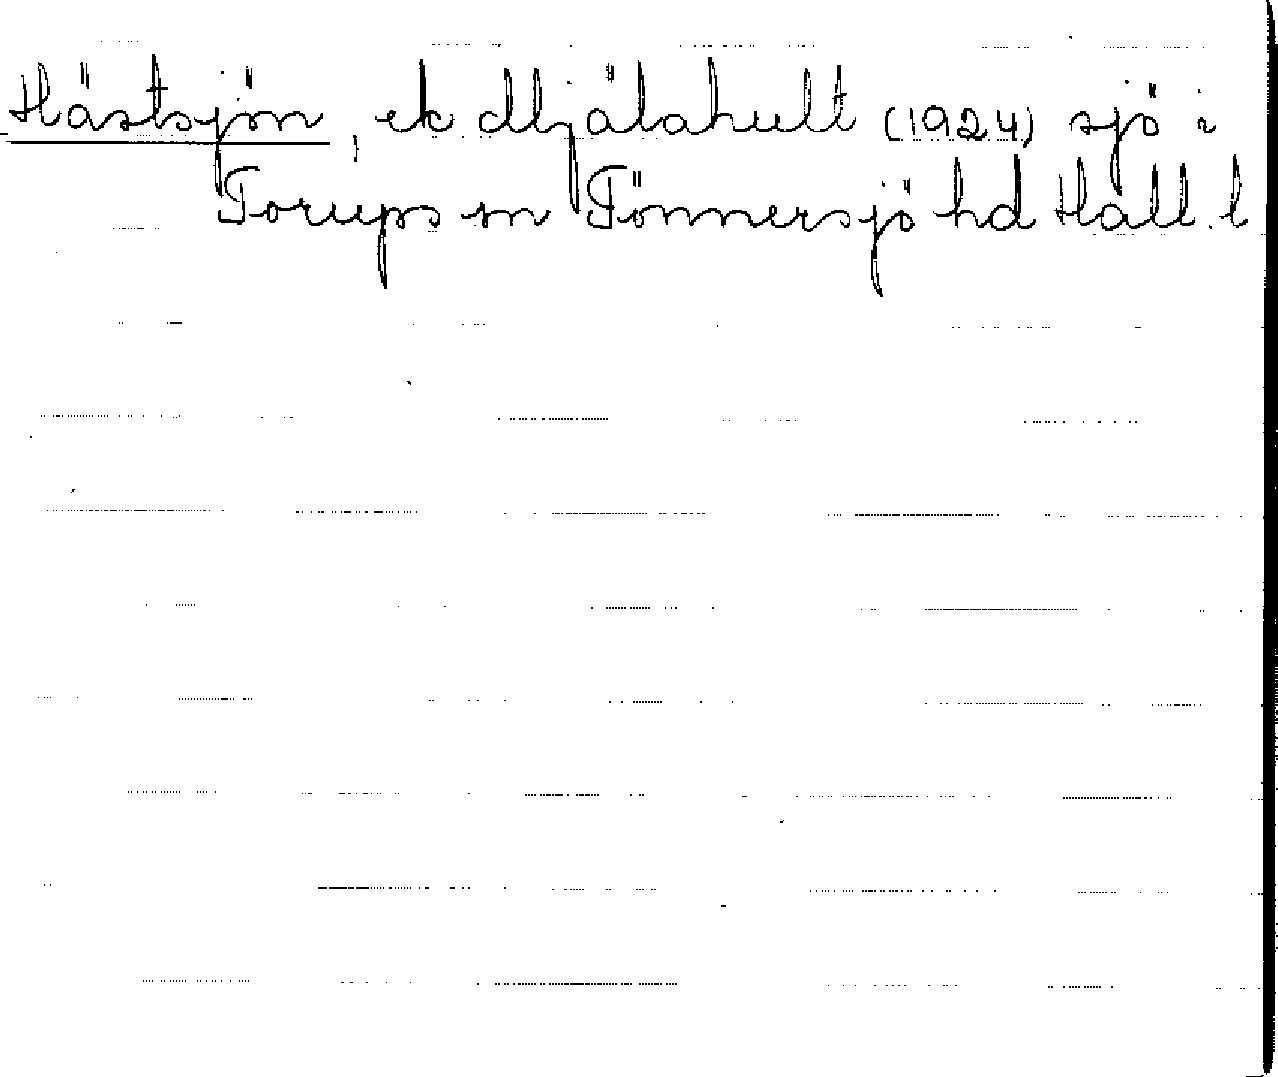 Hästsjön, ek Mjälahult (1924) sjö i
Torups sn Tönnersjö hd Hall. l